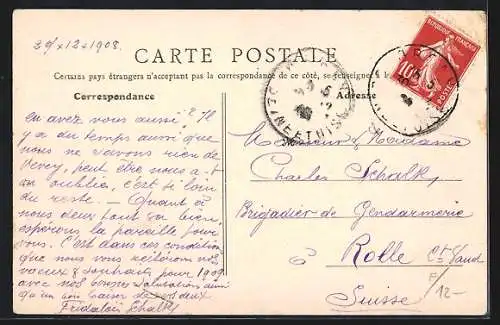 30/×12×1908.
CARTE POSTALE
Certains pays étrangers n'acceptant pas la correspondance de ce côté, se renseigner
Correspondance
Adresse
RÉPUBLIQUE FRANÇAISE
10
POSTES
SEINE ET OISE
en avez vous aussi? Il
y a du temps aussi que
nous ne savons rien de
Vevey, peut être nous a t
on oublié, c'est si loin
du reste. — Quant à
nous deux tout va bien,
espérons la pareille pour
vous. C'est dans ces conditions
que nous vous réitérons nos
vœux & souhaits pour 1909
avec nos bonnes salutations ainsi
qu'un bon baiser de vos deux
Fridolin Schalk
Monsieur & Madame
Charles Schalk,
Brigadier de Gendarmerie
Rolle Ct. Vaud
Suisse
12-